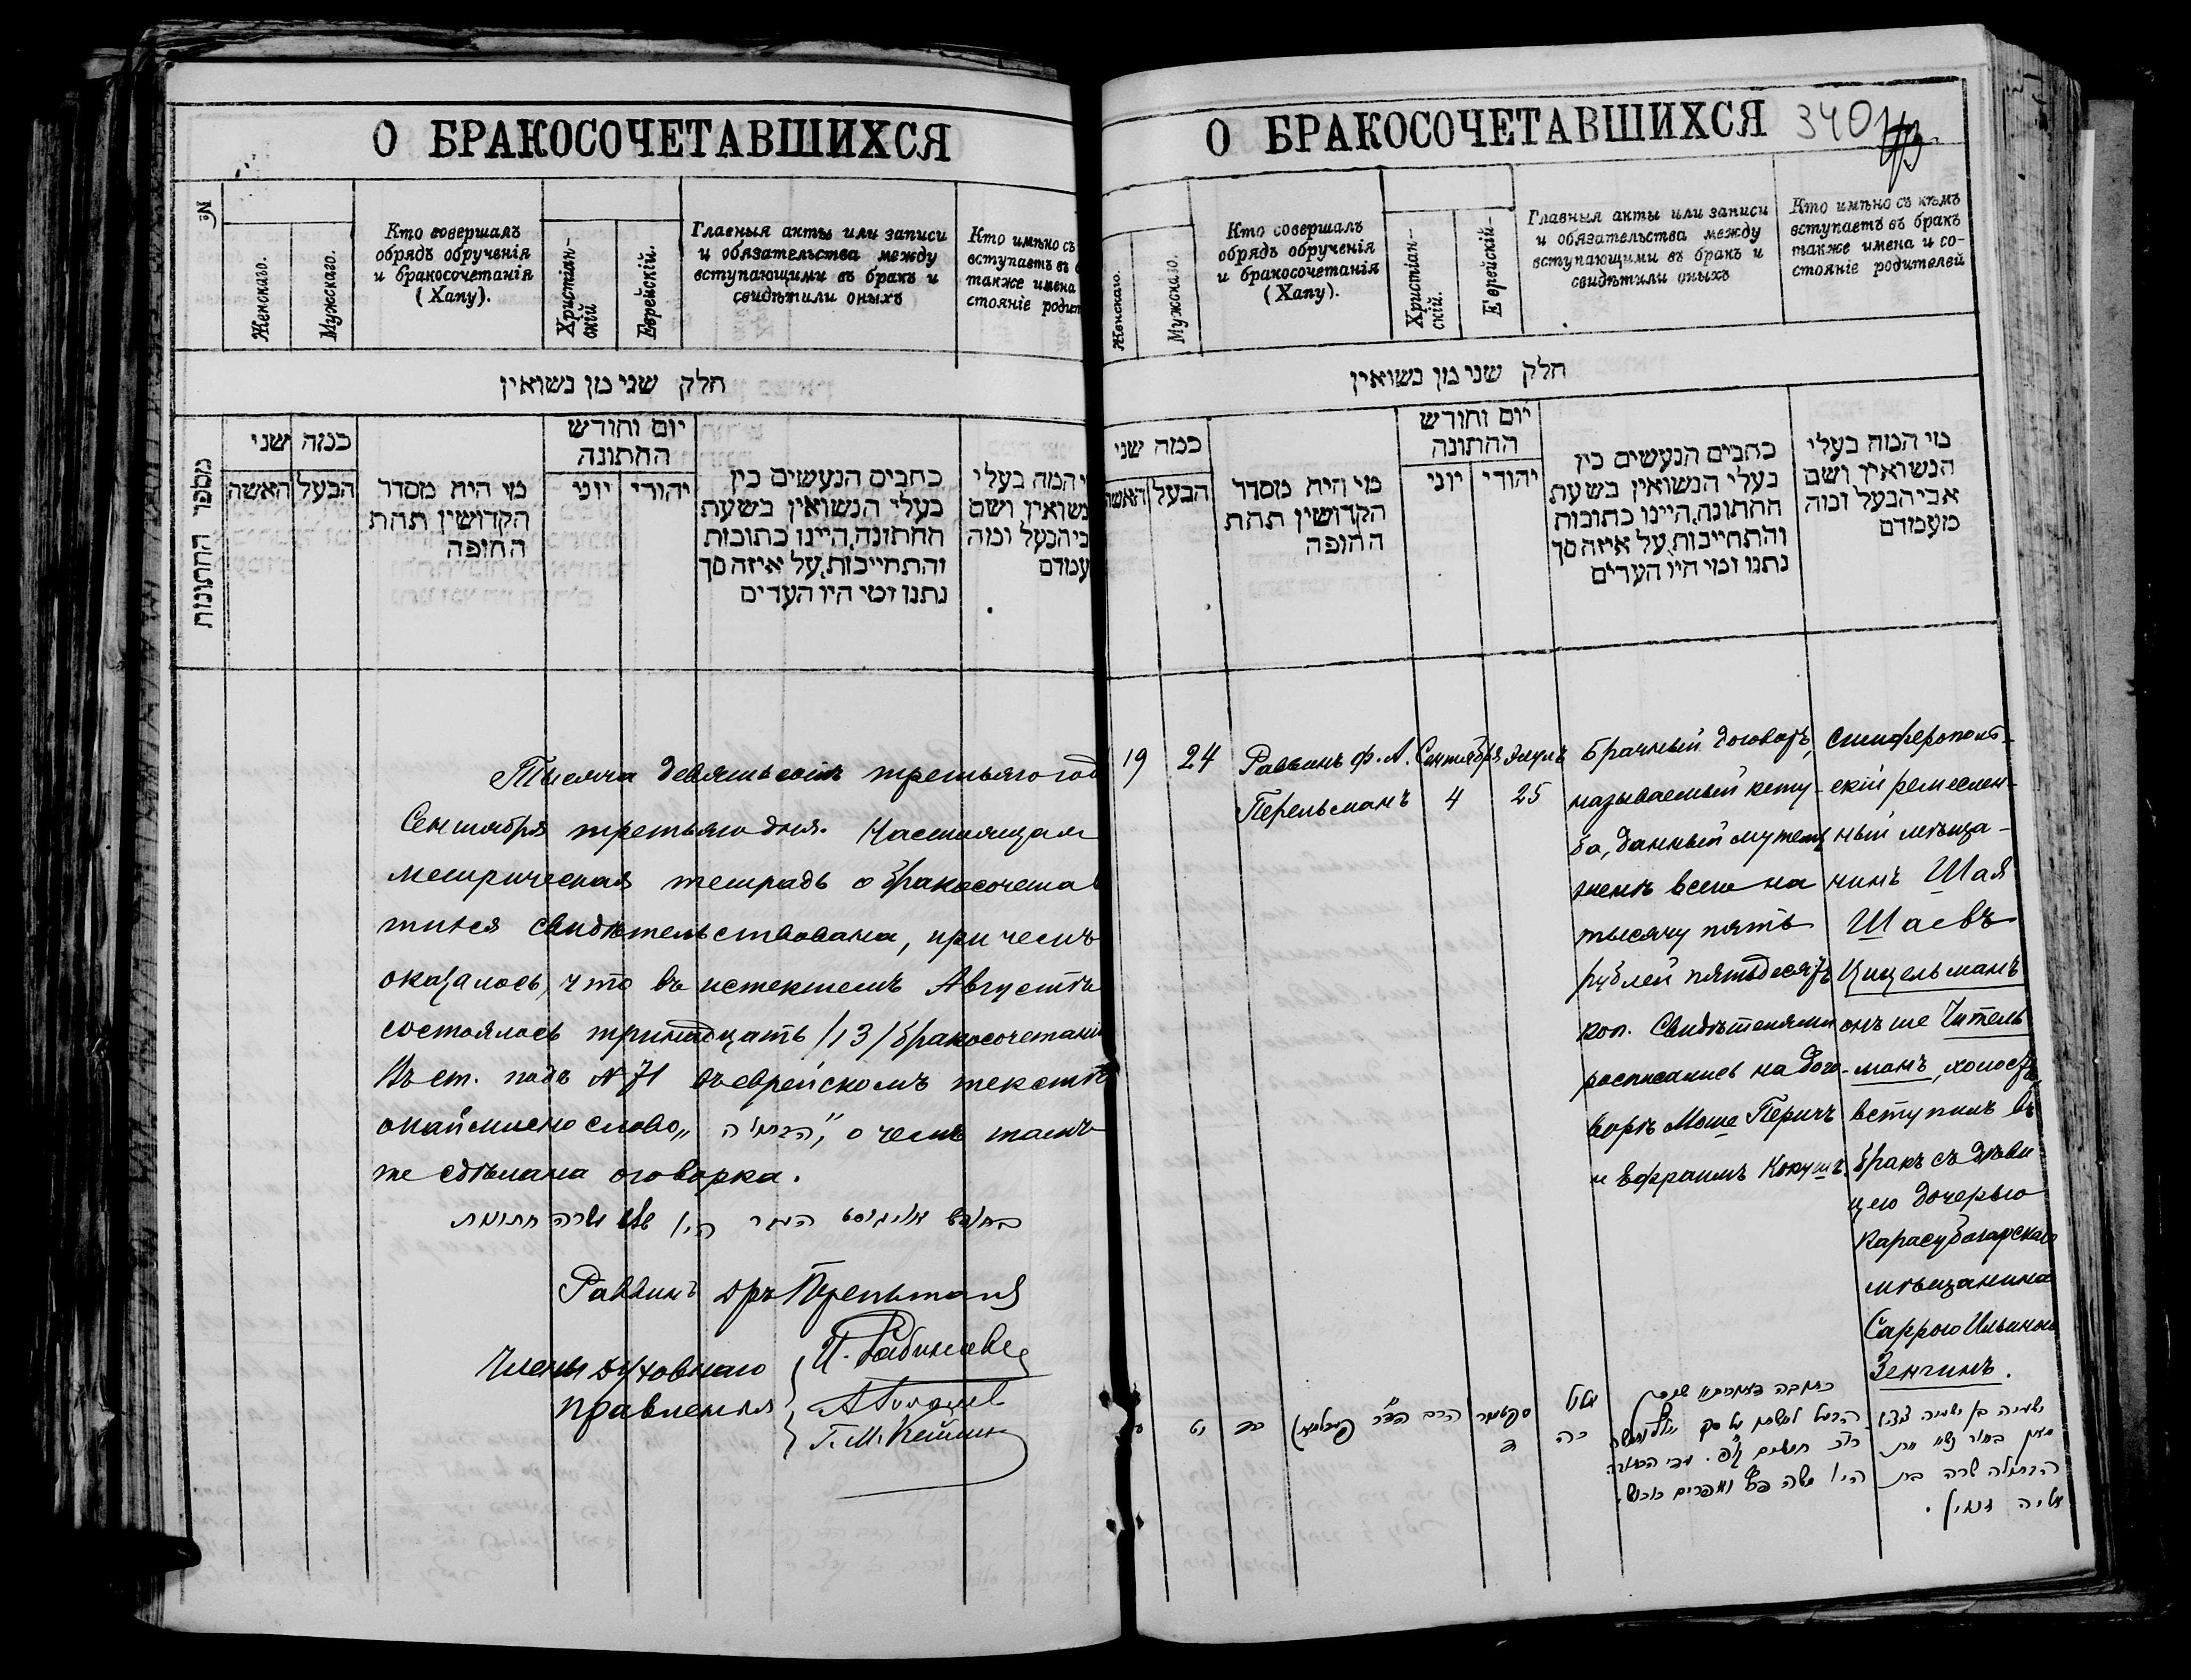 О БРАКОСОЧЕТАВШИХСЯ
№
Женскаго.
Мужскаго.
Кто совершалъ
обрядъ обрученія
и бракосочетанія
(Хапу).
Христіан-
скій
Еврейскій.
Главныя акты или записи
и обязательства между
вступающими въ бракъ и
свидѣтили оныхъ
Кто имѣно съ
вступаетъ въ
также имена
стояніе родит
חלק שני מן נשואין
מספר החתונות
כמה שני
האשה
הבעל
מי היה מסדר
הקדושין תחת
החופה
יום וחודש
החתונה
יוני
יהודי
כתבים הנעשים בין
בעלי הנשואין בשעת
החתונה, היינו כתובות
והתחייבות, על איזה סך
נתנו ומי היו העדים
י המה בעלי
נשואין ושם
בי הבעל ומה
עמדם
Тысяча девятьсотъ третьяго год
Сентября третьяго дня. Настоящая
метрическая тетрадь о бракосочетав
шихся свидѣтельствована, при чемъ
оказалось, что въ истекшемъ Августѣ
состоялось тринадцать /13/ бракосочетаній
Въ ст. подъ № 71 въ еврейскомъ текстѣ
окаймлено слово „הבתולה", о чемъ тамъ
же сдѣлана оговорка.
בחודש אויגוסט העבר היו שלש עשרה חתונות
Раввинъ дръ Перельманъ
Члены духовнаго
правленія
О БРАКОСОЧЕТАВШИХСЯ
340
Женскаго.
Мужскаго.
Кто совершалъ
обрядъ обрученія
и бракосочетанія
(Хапу).
Христіан-
скій.
Еврейскій-
Главныя акты или записи
и обязательства между
вступающими въ бракъ и
свидѣтили оныхъ
Кто имѣно съ кѣмъ
вступаетъ въ бракъ
также имена и со-
стояніе родителей
חלק שני מן נשואין
כמה שני
האשה
הבעל
מי היה מסדר
הקדושין תחת
החופה
יום וחודש
החתונה
יוני
יהודי
כתבים הנעשים בין
בעלי הנשואין בשעת
החתונה, היינו כתובות
והתחייבות, על איזה סך
נתנו ומי היו העדים
מי המה בעלי
הנשואין ושם
אבי הבעל ומה
מעמדם
19
24
Раввинъ Ф. А.
Перельманъ
Сентября
4
Элулъ
25
Брачный договоръ,
называемый кету-
ба, данный мужемъ
женѣ всего на
тысячу пять
рублей пятьдесятъ
коп. Свидѣтелями
росписались на дого-
ворѣ Моше Перичъ
и Ефраимъ Кокушъ.
Симферополь-
скій ремеслен-
ный мѣща-
нинъ Шая
Шаевъ
Цицельманъ
онъ же Читель
манъ, холостъ,
вступилъ въ
бракъ съ дѣви
цею дочерью
Карасубазарскаго
мѣщанина
Саррою Ильиною
Зенгинъ.
כד
הרב
אלול
כה
הבתולה שרה בת
היו משה